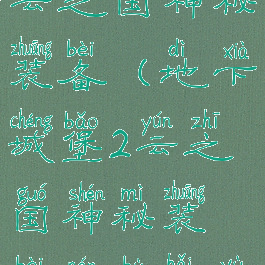 云之国神秘
zhuāng bèi dì xià
装备（地下
chéng bǎo yún zhī
城堡2云之
guó shén mì zhuāng
国神秘装